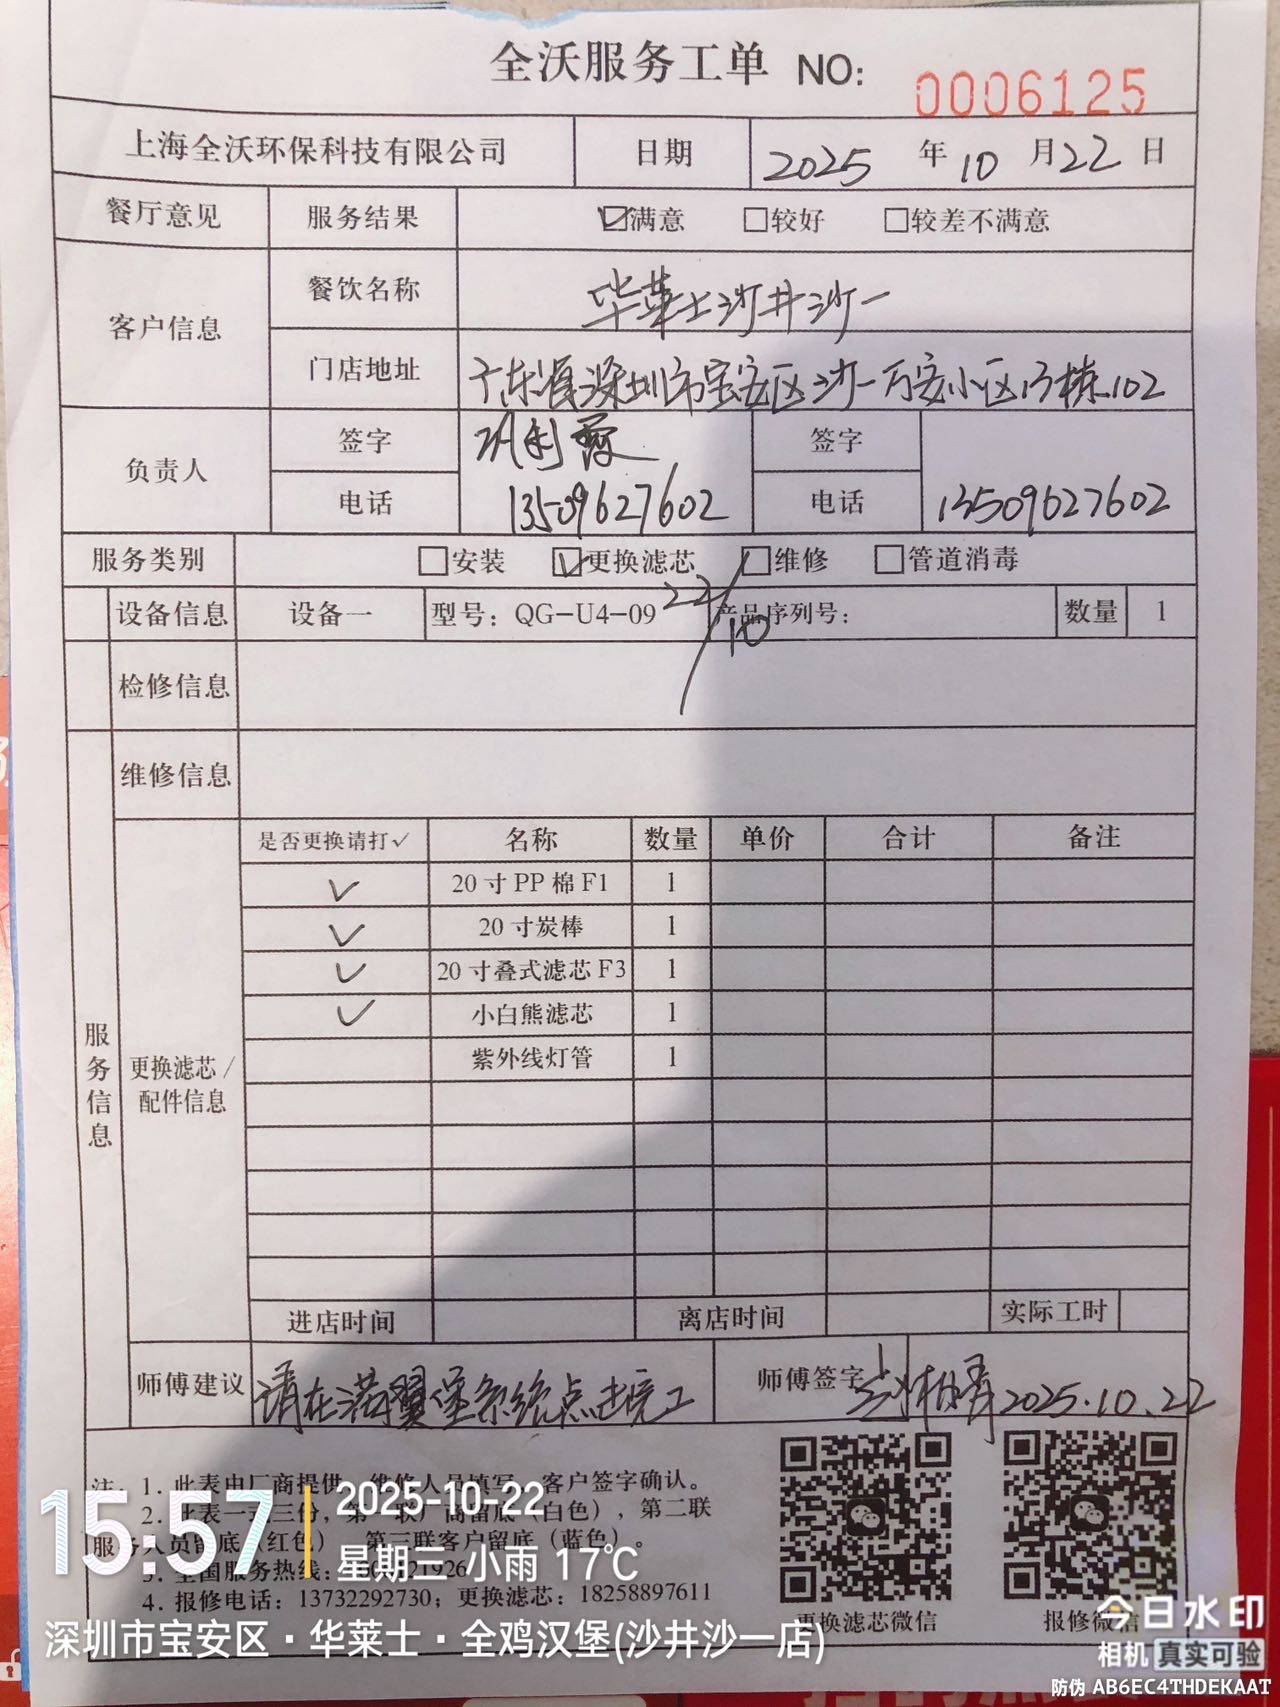 全沃服务工单 NO: 0006125
上海全沃环保科技有限公司 日期 2025 年 10 月 22 日
餐厅意见 服务结果 ☑满意 □较好 □较差不满意
客户信息 餐饮名称 华莱士沙井沙一
门店地址 广东省深圳市宝安区沙一万安小区13栋102
负责人 签字 签字
电话 13509627602 电话 13509627602
服务类别 □安装 ☑更换滤芯 □维修 □管道消毒
22/10
设备信息 设备一 型号：QG-U4-09 产品序列号： 数量 1
检修信息
维修信息
服务信息
更换滤芯/
配件信息
是否更换请打✓ 名称 数量 单价 合计 备注
✓ 20寸PP棉F1 1
✓ 20寸炭棒 1
✓ 20寸叠式滤芯F3 1
✓ 小白熊滤芯 1
紫外线灯管 1
进店时间 离店时间 实际工时
师傅建议 请在满翼堡系统点击完工 师傅签字 2025.10.22
注：1. 此表由厂商提供，维修人员填写，客户签字确认。
2. 此表一式三份，第一联厂商留底（白色），第二联
服务人员留底（红色），第三联客户留底（蓝色）。
3. 全国服务热线：
4. 报修电话：13732292730；更换滤芯：18258897611
更换滤芯微信 报修微信
15:57 2025-10-22
星期三 小雨 17℃
深圳市宝安区·华莱士·全鸡汉堡(沙井沙一店)
今日水印
相机 真实可验
防伪 AB6EC4THDEKAAT